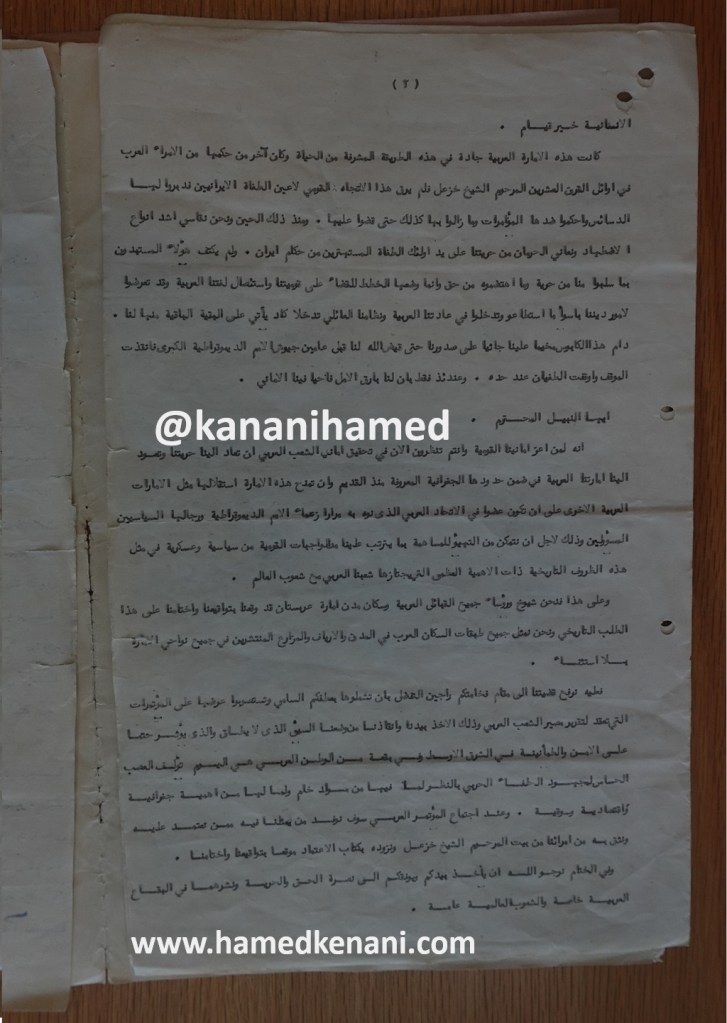 ( ٢ )
الانسانية خير قيام .
كانت هذه الامارة العربية جادة في هذه الطريقة المشرفة من الحياة وكان آخر من حكمها من الامراء العرب
في اوائل القرن العشرين المرحيم الشيخ خزعل فلم يرق هذا الاتجاه القومي لاعين الطغاة الايرانيين فدبروا لها
الدسائس واحكموا ضدها المؤامرات وما زالوا بها كذلك حتى قضوا عليها . ومنذ ذلك الحين ونحن نقاسي اشد انواع
الاضطهاد ونعاني الحرمان من حريتنا على يد اولئك الطغاة المستهترين من حكام ايران . ولم يكتف هؤلاء المستبدون
بما سلبوا منا من حرية وما اهتضموه من حق وانما وضعوا الخطط للقضاء على قوميتنا واستئصال لغتنا العربية وقد تعرضوا
لامور ديننا باسوأ ما استطاعو وتدخلوا في عادتنا العربية ونظامنا العائلي تدخلا كاد يأتي على البقية الباقية منها لنا .
دام هذا الكابوس مخيما علينا جاثيا على صدورنا حتى قيض الله لنا قبل عامين جيوش الامم الديموقراطية الكبرى فانقذت
الموقف واوقفت الطغيان عند حده . وعندئذ فقط بان لنا بارق الامل فاحيا فينا الاماني .
ايها النبيل المحترم .
@kananihamed
انه لمن اعز امانينا القومية وانتم تنظرون الان في تحقيق اماني الشعب العربي ان تعاد الينا حريتنا وتعود
الينا امارتنا العربية في ضمن حدودها الجغرافية المعروفة منذ القديم وان تمنح هذه الامارة استقلالها مثل الامارات
العربية الاخرى على ان تكون عضوا في الاتحاد العربي الذي نوه به مرارا زعماء الامم الديموقراطية ورجالها السياسيين
المسؤلين وذلك لاجل ان نتمكن من التجهيز للمساهمة بما يترتب علينا من الواجبات القومية من سياسية وعسكرية في مثل
هذه الظروف التاريخية ذات الاهمية العظمى التي يجتازها شعبنا العربي مع شعوب العالم .
وعلى هذا فنحن شيوخ ورؤساء جميع القبائل العربية وسكان مدن امارة عربستان قد وقعنا بتواقيعنا واختامنا على هذا
الطلب التاريخي ونحن نمثل جميع طبقات السكان العرب في المدن والارياف والمزارع المنتشرين في جميع نواحي الامارة
بلا استثناء .
نطيه نرفع قضيتنا الى مقام فخامتكم راجين التفضل بان تشملوها بعطفكم السامي وتستصوبوا عرضها على المؤتمرات
التي تعقد لتقرير مصير الشعب العربي وذلك الاخذ بيدنا وانقاذنا من وضعنا السيئ الذى لا يطاق والذى يؤثر حتما
على الامن والطمأنينة في الشرق الاوسط وفي بقعة من الوطن العربي هي اليوم تؤلف العصب
الحساس لمجهود الحلفاء الحربي بالنظر لما فيها من مواد خام ولما لها من اهمية جغرافية
واقتصادية وسوقية . وعند اجتماع المؤتمر العربي سوف نوفد من يمثلنا فيه ممن نعتمد عليه
ونثق به من امرائنا من بيت المرحيم الشيخ خزعل ونزوده بكتاب الاعتماد موقعا بتواقيعنا واختامنا .
وفي الختام نرجو الله ان يأخذ بيدكم ويوفقكم الى نصرة الحق والحرية ونشرهما في البقاع
العربية خاصة والشعوب العالمية عامة .
www.hamedkenani.com